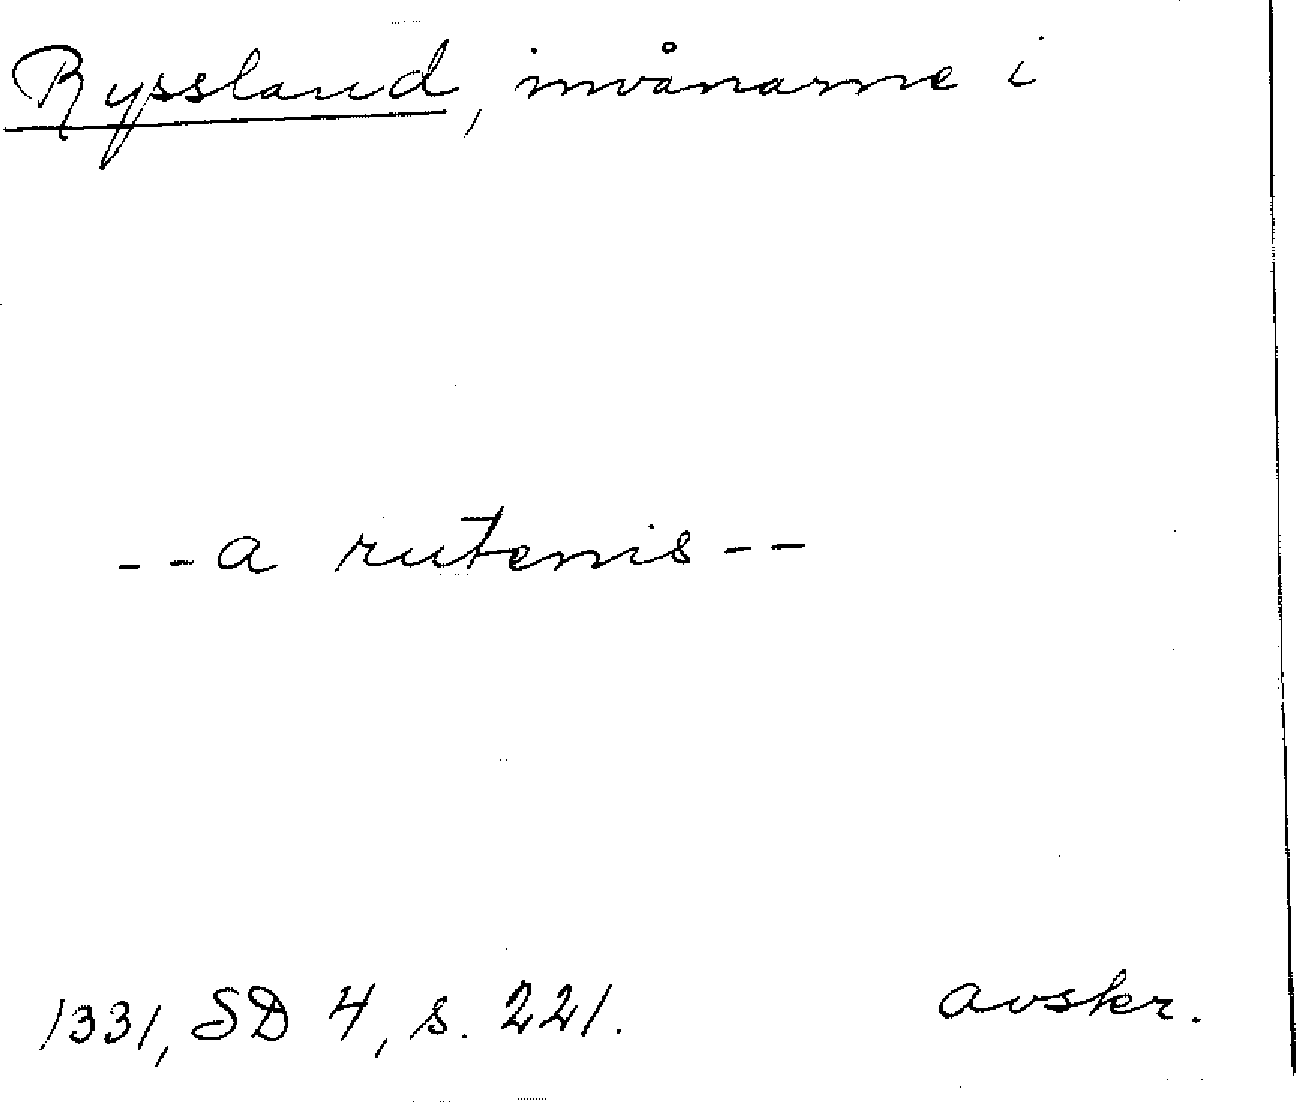 Ryssland, invånarne i
--a rutenis--
1331, SD 4, s. 221. avskr.